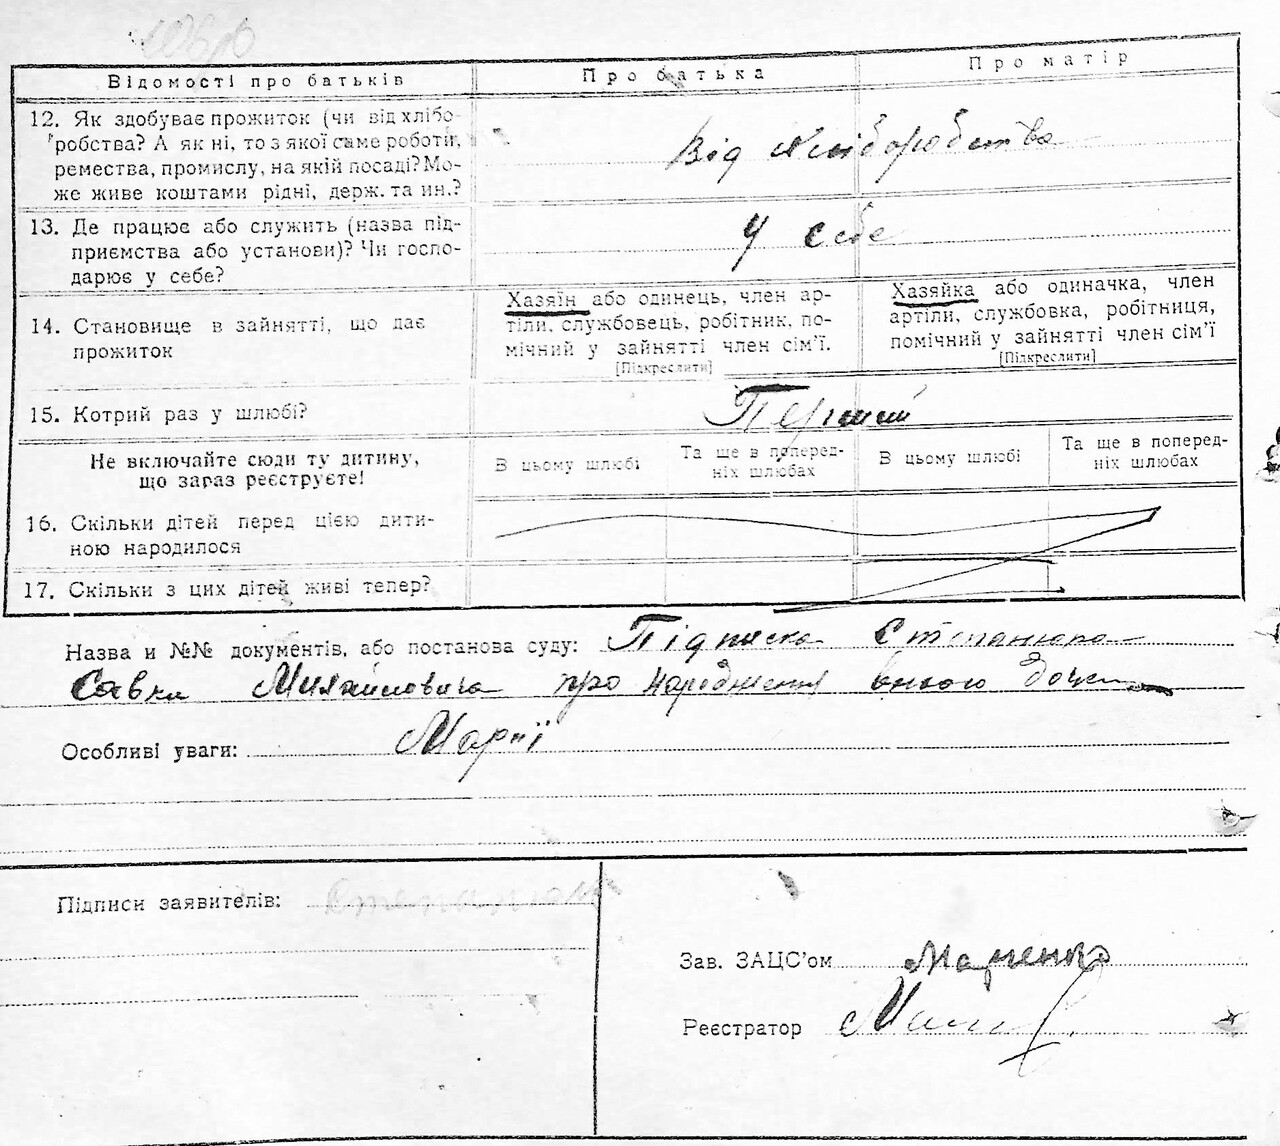 Відомості про батьків
Про батька
Про матір
12. Як здобуває прожиток (чи від хлібо-
робства? А як ні, то з якої саме роботи,
ремества, промислу, на якій посаді? Мо-
же живе коштами рідні, держ. та ин.?
Від хліборобства
13. Де працює або служить (назва під-
приємства або установи)? Чи госпо-
дарює у себе?
У себе
14. Становище в зайнятті, що дає
прожиток
Хазяїн або одинець, член ар-
тіли, службовець, робітник, по-
мічний у зайнятті член сім'ї.
[Підкреслити]
Хазяйка або одиначка, член
артіли, службовка, робітниця,
помічний у зайнятті член сім'ї
[Підкреслити]
15. Котрий раз у шлюбі?
Перший
Не включайте сюди ту дитину,
що зараз реєструєте!
В цьому шлюбі
Та ще в поперед-
ніх шлюбах
В цьому шлюбі
Та ще в поперед-
ніх шлюбах
16. Скільки дітей перед цією дити-
ною народилося
17. Скільки з цих дітей живі тепер?
Назва и №№ документів, або постанова суду: Підписка Степанюка
Савки Михайловича про народження в нього дочки
Особливі уваги: Марії
Підписи заявителів: Степанюк
Зав. ЗАЦС'ом
Реєстратор